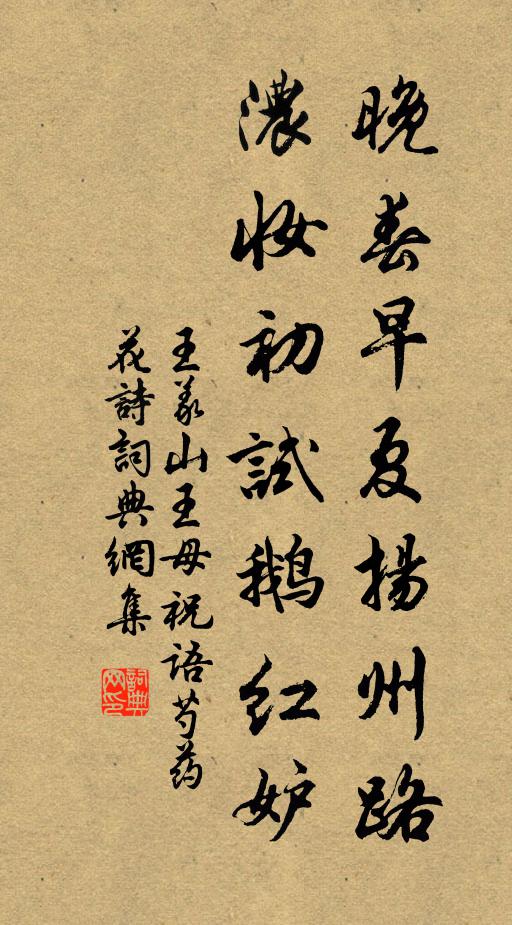 晚春早夏揚州路
濃妝初試鵝紅妒
王義山王母祝語芍药
花詩詞典網集
詞典
网印